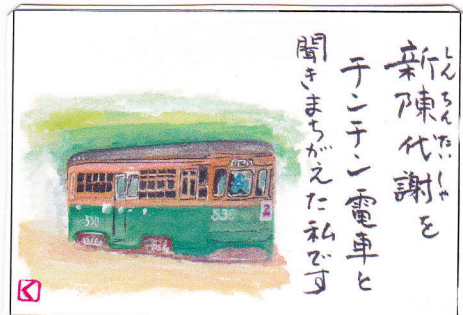 しんちんたいしゃ
新陳代謝を
チンチン電車と
聞きまちがえた私です
530
530
2
く